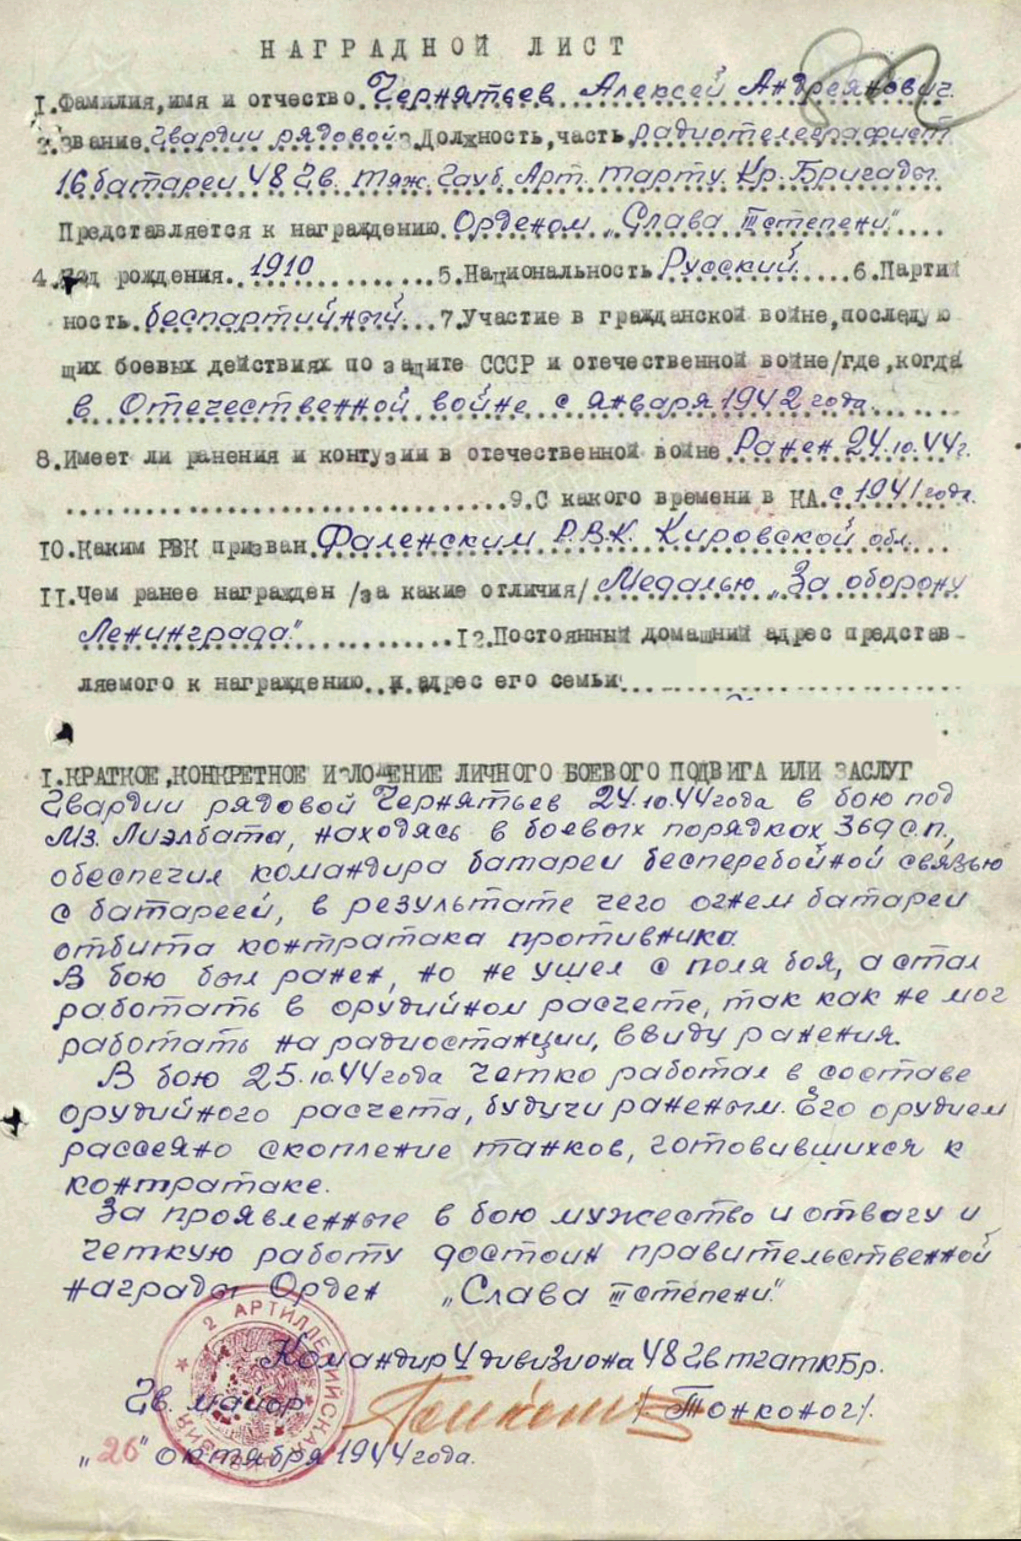 НАГРАДНОЙ ЛИСТ
1.Фамилия,имя и отчество Чернятьев Алексей Андреянович.
2.Звание Гвардии рядовой 3.Должность,часть радиотелеграфист
16 батареи 48 Гв. тяж. Гауб. Арт. Тарту. Кр. Бригады.
Представляется к награждению Орденом „Слава III степени"
4.Год рождения 1910 5.Национальность Русский 6.Партий
ность беспартийный 7.Участие в гражданской войне,последую
щих боевых действиях по защите СССР и отечественной войне/где,когда
в Отечественной войне с января 1942 года
8.Имеет ли ранения и контузии в отечественной войне Ранен 24.10.44г.
9.С какого времени в КА с 1941 года.
10.Каким РВК призван Фаленским Р.В.К. Кировской обл.
11.Чем ранее награжден /за какие отличия/ Медалью „За оборону
Ленинграда". 12.Постоянный домашний адрес представ-
ляемого к награждению и адрес его семьи
I.КРАТКОЕ,КОНКРЕТНОЕ ИЗЛОЖЕНИЕ ЛИЧНОГО БОЕВОГО ПОДВИГА ИЛИ ЗАСЛУГ
Гвардии рядовой Чернятьев 24.10.44 года в бою под
Мз. Лиэлбата, находясь в боевых порядках 369 с.п.,
обеспечил командира батареи бесперебойной связью
с батареей, в результате чего огнем батареи
отбита контратака противника.
В бою был ранен, но не ушел с поля боя, а стал
работать в орудийном расчете, так как не мог
работать на радиостанции, ввиду ранения.
В бою 25.10.44 года четко работал в составе
орудийного расчета, будучи раненым. Его орудием
рассеяно скопление танков, готовившихся к
контратаке.
За проявленные в бою мужество и отвагу и
четкую работу достоин правительственной
награды Орден „Слава III степени".
Командир 4 дивизиона 48 Гв тгатКБр.
Гв. майор /Тонконог/.
„26" октября 1944 года.
2 АРТИЛЛЕРИЙСКАЯ ДИВИЗИЯ